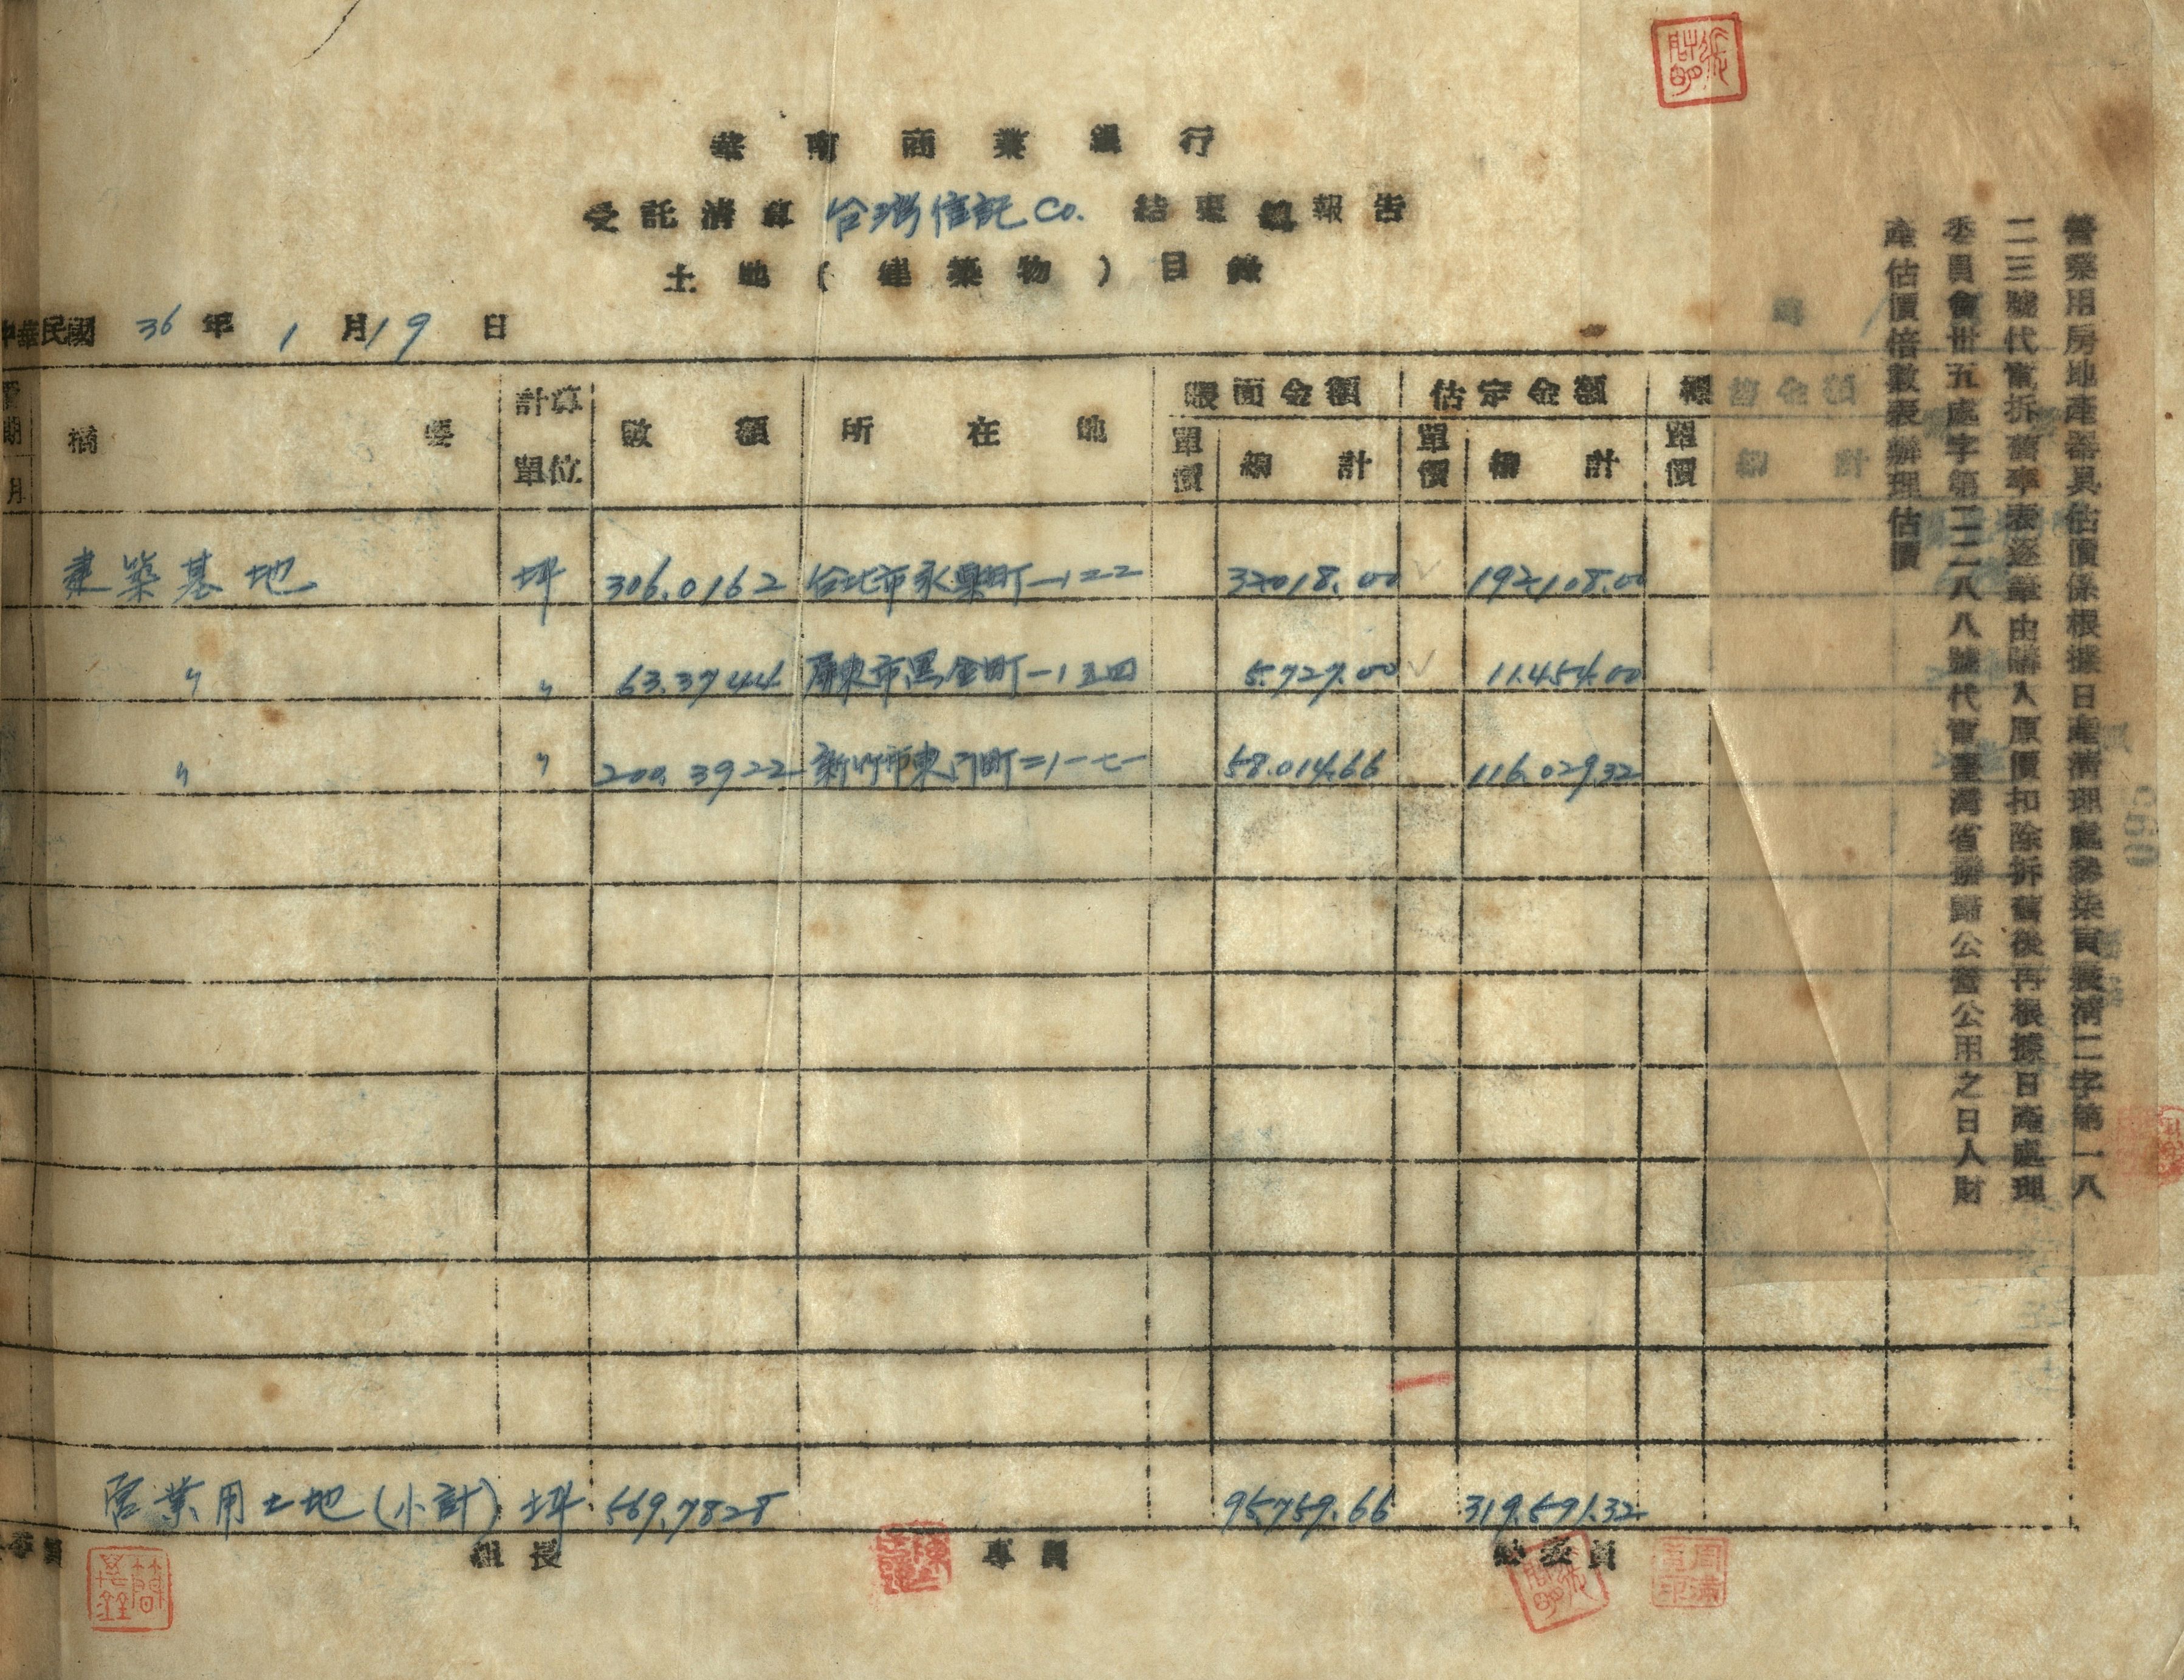 華南商業銀行
受託清算 台灣信託Co. 結束總報告
土地(建築物)目錄
中華民國 36 年 1 月 19 日
摘要 計算單位 數額 所在地 賬面金額 估定金額
單價 總計 單價 總計 單價 總計
建築基地 坪 306.0162 台北市永樂町一ノ二二 32.018.00 192.108.00
〃 〃 63.3744 屏東市黑金町一ノ五四 5.727.00 11.454.00
〃 〃 200.3922 新竹市東門町二ノ一七一 58.014.66 116.029.32
营業用土地(小計) 坪 569.7828 95.759.66 319.591.32
組長 專員
營業用房地產器具估價係根據日產清理處 清二字第一八
二三號代電折舊率表逐筆由購入原價扣除折舊後再根據日產處理
委員會卅五處字第二二八八號代電臺灣省 歸公營公用之日人財
產估價倍數表辦理估價